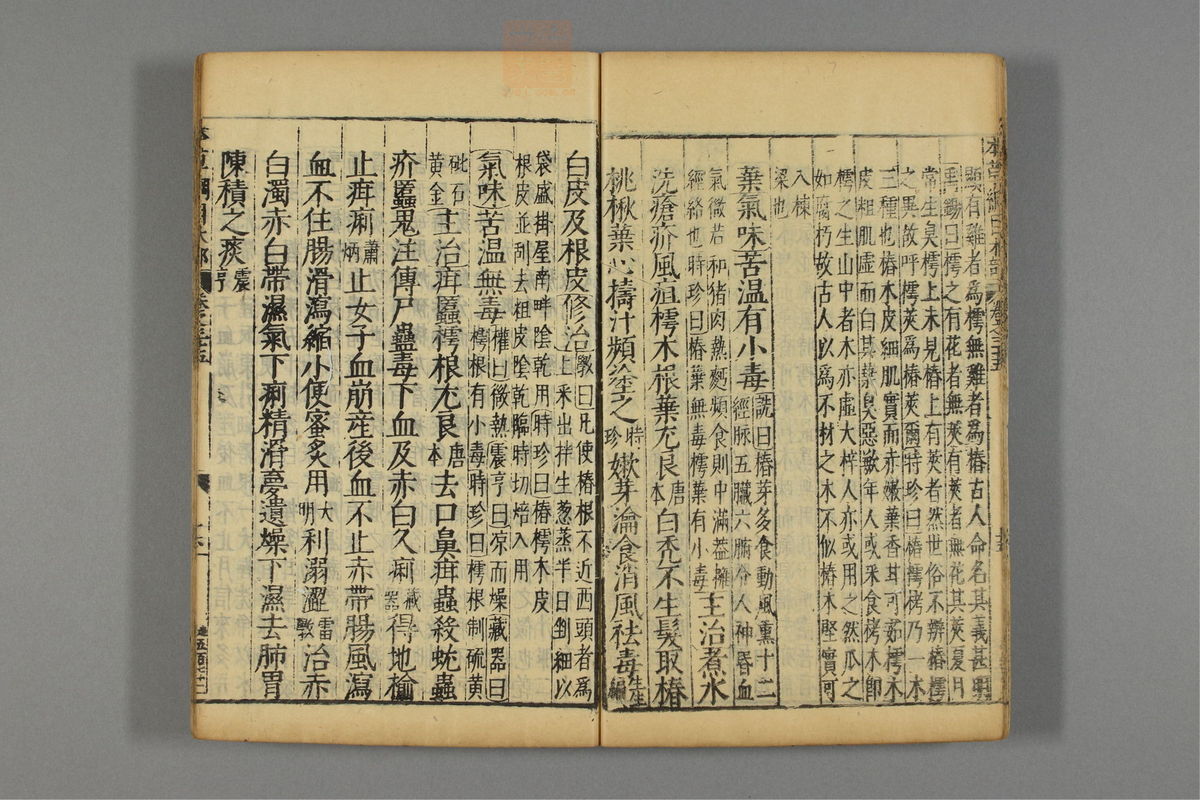 本草綱目木部 卷之三十五
顯有雞者爲樗無雞者爲椿古人命名其義甚明
禹錫曰樗之有花者無莢有莢者無花其莢夏月
常生臭樗上未見椿上有莢者然世俗不辨椿樗
之異故呼樗莢爲椿莢爾時珍曰椿樗栲乃一木
三種也椿木皮細肌實而赤嫩葉香甘可茹樗木
皮粗肌虛而白其葉臭惡歉年人或采食栲木卽
樗之生山中者木亦虛大梓人亦或用之然爪之
如腐朽故古人以爲不材之木不似椿木堅實可
入棟
梁也
葉氣味苦温有小毒
詵曰椿芽多食動風熏十二
經脉五臟六腑令人神昏血
氣微若和猪肉熱麪頻食則中滿蓋擁
經絡也時珍曰椿葉無毒樗葉有小毒
主治煮水
洗瘡疥風疽樗木根葉尤良唐本白禿不生髮取椿
桃楸葉心擣汁頻塗之時珍嫩芽瀹食消風祛毒生生編
白皮及根皮修治
斆曰凡使椿根不近西頭者爲
上采出拌生葱蒸半日剉細以
袋盛掛屋南畔陰乾用時珍曰椿樗木皮
根皮並刮去粗皮陰乾臨時切焙入用
氣味苦温無毒
權曰微熱震亨曰凉而燥藏器曰
樗根有小毒時珍曰樗根制硫黄
砒石
黄金
主治疳䘌樗根尤良唐本去口鼻疳蟲殺蚘蟲
疥䘌鬼注傳尸蠱毒下血及赤白久痢藏器得地楡
止疳痢蕭炳止女子血崩産後血不止赤帶腸風瀉
血不住腸滑瀉縮小便蜜炙用大明利溺澀雷斆治赤
白濁赤白帶濕氣下痢精滑夢遺燥下濕去肺胃
陳積之痰震亨
卷之三十五